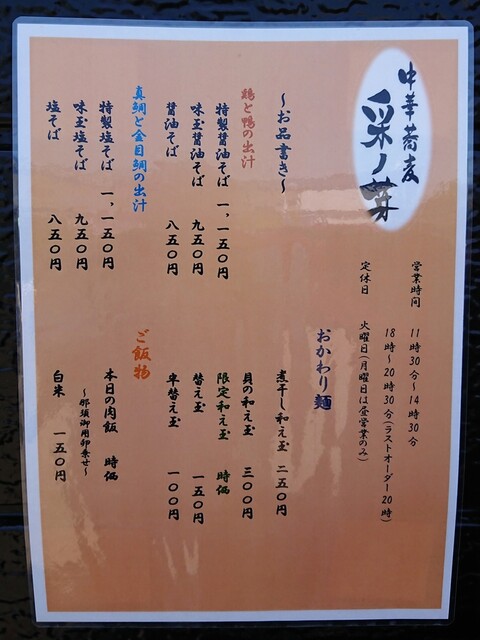 中華蕎麦
采ノ菜
営業時間 11時30分～14時30分
18時～20時30分(ラストオーダー20時)
定休日 火曜日(月曜日は昼営業のみ)
～お品書き～
鶏と鴨の出汁
特製醤油そば 一,一五〇円
味玉醤油そば 九五〇円
醤油そば 八五〇円
真鯛と金目鯛の出汁
特製塩そば 一,一五〇円
味玉塩そば 九五〇円
塩そば 八五〇円
おかわり麺
煮干し和え玉 二五〇円
貝の和え玉 三〇〇円
限定和え玉 時価
替え玉 一五〇円
半替え玉 一〇〇円
ご飯物
本日の肉飯 時価
～那須御用卵乗せ～
白米 一五〇円